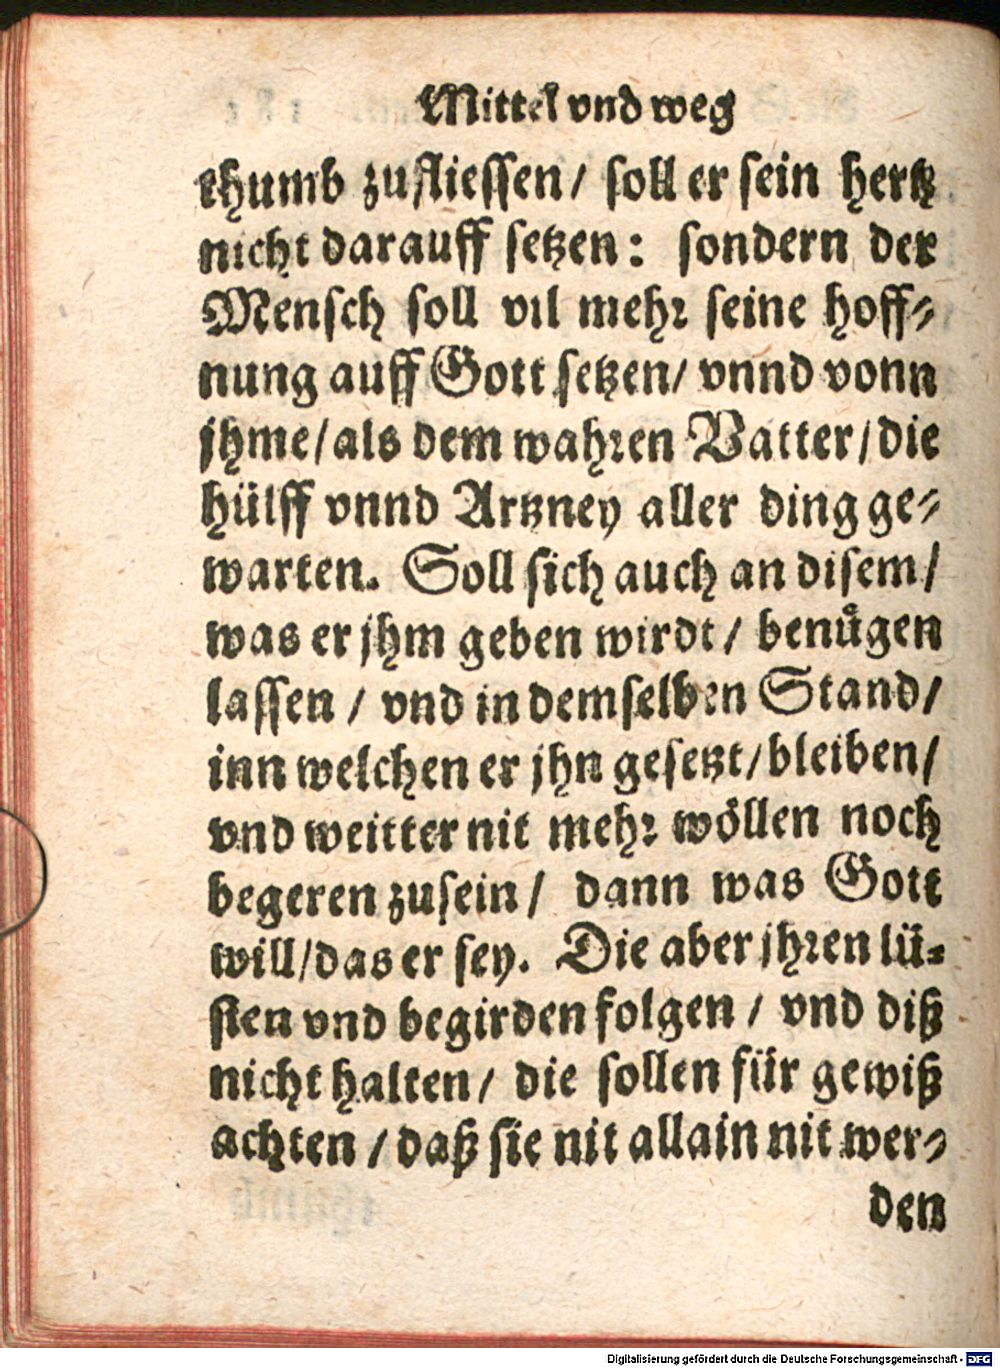 Mittel vnd weg
thumb zufliessen/ soll er sein hertz
nicht darauff setzen: sondern der
Mensch soll vil mehr seine hoff⸗
nung auff Gott setzen/ vnnd vonn
jhme/ als dem wahren Vatter/ die
hülff vnnd Artzney aller ding ge⸗
warten. Soll sich auch an disem/
was er jhm geben wirdt/ benuͤgen
lassen/ vnd in demselben Stand/
inn welchen er jhn gesetzt/ bleiben/
vnd weitter nit mehr wöllen noch
begeren zusein/ dann was Gott
will/ das er sey. Die aber jhren lü⸗
sten vnd begirden folgen/ vnd diß
nicht halten/ die sollen für gewiß
achten/ daß sie nit allain nit wer⸗
den
Digitalisierung gefördert durch die Deutsche Forschungsgemeinschaft - DFG